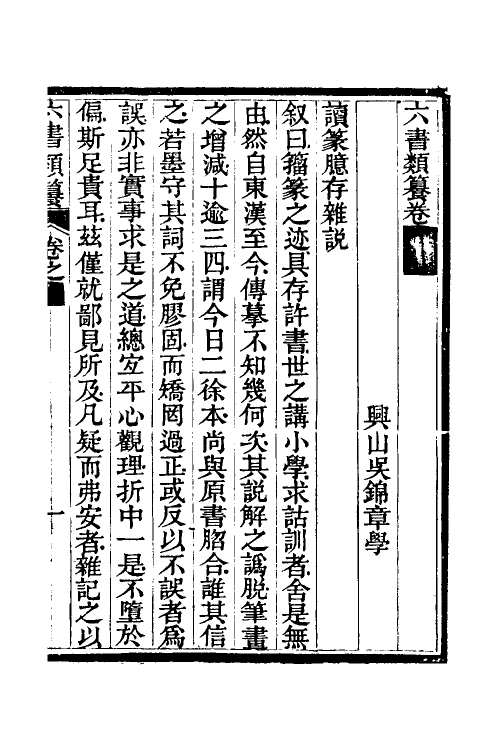 六書類籑卷
興山吳錦章學
讀篆臆存雜說
叙曰籀篆之迹具存許書世之講小學求詁訓者舍是無
由然自東漢至今傳摹不知幾何次其説解之譌脫筆畫
之增減十逾三四謂今日二徐本尚與原書脗合誰其信
之若墨守其詞不免膠固而矯罔過正或反以不誤者爲
誤亦非實事求是之道總宐平心觀理折中一是不墮於
偏斯足貴耳茲僅就鄙見所及凡疑而弗安者雜記之以
六書類籑 卷之 一